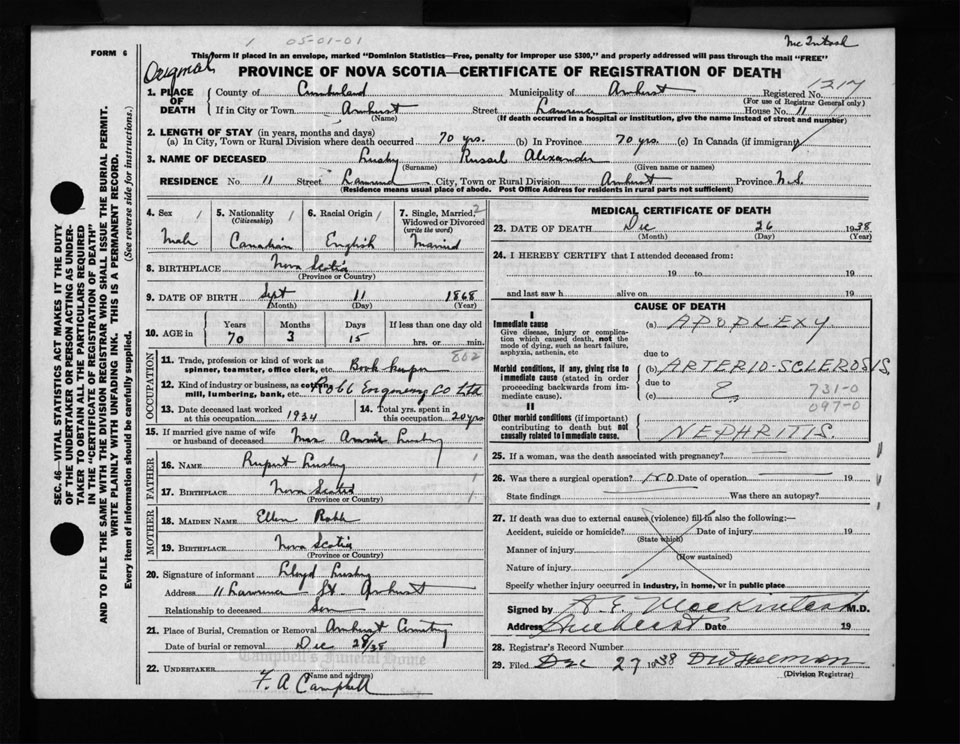 1 05-01-01
McIntosh
FORM 6
This form if placed in an envelope, marked "Dominion Statistics—Free, penalty for improper use $300," and properly addressed will pass through the mail "FREE"
Original
PROVINCE OF NOVA SCOTIA—CERTIFICATE OF REGISTRATION OF DEATH
1217
1. PLACE OF DEATH County of Cumberland Municipality of Amherst Registered No.
(For use of Registrar General only)
If in City or Town Amherst Street Lawrence House No. 11
(Name) (If death occurred in a hospital or institution, give the name instead of street and number)
2. LENGTH OF STAY (in years, months and days)
(a) In City, Town or Rural Division where death occurred 70 yrs. (b) In Province 70 yrs. (c) In Canada (if immigrant)
3. NAME OF DECEASED Lusby Russel Alexander
(Surname) (Given name or names)
RESIDENCE No. 11 Street Lawrence City, Town or Rural Division Amherst Province N.S.
(Residence means usual place of abode. Post Office Address for residents in rural parts not sufficient)
4. Sex 1 5. Nationality 1 6. Racial Origin 1 7. Single, Married, 2
(Citizenship) Widowed or Divorced
(write the word)
Male Canadian English Married
8. BIRTHPLACE Nova Scotia
(Province or Country)
9. DATE OF BIRTH Sept 11 1868
(Month) (Day) (Year)
10. AGE in Years Months Days If less than one day old
70 3 15 hrs. or min.
OCCUPATION
802
11. Trade, profession or kind of work as
spinner, teamster, office clerk, etc. Book keeper
12. Kind of industry or business, as cotton
mill, lumbering, bank, etc. Robb Engineering Co Ltd
13. Date deceased last worked
at this occupation 1934
14. Total yrs. spent
in this occupation 20 yrs
15. If married give name of wife
or husband of deceased Mrs Annie Lusby
FATHER
16. NAME Rupert Lusby 1
17. BIRTHPLACE Nova Scotia 1
(Province or Country)
MOTHER
18. MAIDEN NAME Ellen Robb
19. BIRTHPLACE Nova Scotia
(Province or Country)
20. Signature of informant Lloyd Lusby
Address 11 Lawrence St. Amherst
Relationship to deceased Son
21. Place of Burial, Cremation or Removal Amherst Cemetery
Date of burial or removal Dec 28/38
Campbell's Funeral Home
22. UNDERTAKER
(Name and address)
F. A Campbell
MEDICAL CERTIFICATE OF DEATH
23. DATE OF DEATH Dec 26 1938
(Month) (Day) (Year)
24. I HEREBY CERTIFY that I attended deceased from:
19 to 19
and last saw h alive on 19
CAUSE OF DEATH
I
Immediate cause (a) APOPLEXY.
Give disease, injury or complication
which caused death, not the
mode of dying, such as heart failure,
asphyxia, asthenia, etc
due to
Morbid conditions, if any, giving rise to (b) ARTERIO-SCLEROSIS
immediate cause (stated in order
proceeding backwards from immediate
cause).
due to
(c) ?
731-0
097-0
II
Other morbid conditions (if important)
contributing to death but not
causally related to immediate cause. NEPHRITIS.
25. If a woman, was the death associated with pregnancy?
26. Was there a surgical operation? NO Date of operation 19
State findings Was there an autopsy?
27. If death was due to external causes (violence) fill in also the following:—
Accident, suicide or homicide? Date of injury 19
(State which)
Manner of injury
(How sustained)
Nature of injury
Specify whether injury occurred in industry, in home, or in public place
Signed by A. E. Mackintosh M.D.
Address Amherst Date 19
28. Registrar's Record Number
29. Filed Dec 27 1938
(Division Registrar)
SEC. 46—VITAL STATISTICS ACT MAKES IT THE DUTY
OF THE UNDERTAKER OR PERSON ACTING AS UNDERTAKER
TO OBTAIN ALL THE PARTICULARS REQUIRED
IN THE "CERTIFICATE OF REGISTRATION OF DEATH"
AND TO FILE THE SAME WITH THE DIVISION REGISTRAR WHO SHALL ISSUE THE BURIAL PERMIT.
WRITE PLAINLY WITH UNFADING INK. THIS IS A PERMANENT RECORD.
Every item of information should be carefully supplied. (See reverse side for instructions.)